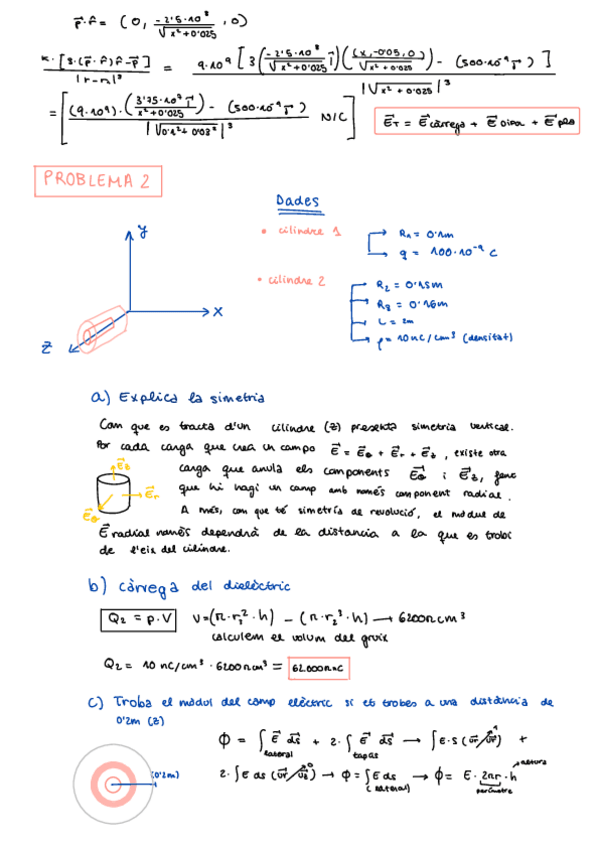 p⃗·r̂ = (0, -2'5·10⁻⁸ / √(x²+0'025), 0)
K·[3·(p⃗·r̂)r̂-p⃗] / |r-r₁|³ = 9·10⁹ [3(-2'5·10⁻⁸ / √(x²+0'025) j⃗)((x,-0'05,0) / √(x²+0'025)) - (500·10⁻⁹ j⃗)] / |√(x²+0'025)|³
= [(9·10⁹)·(3'75·10⁻⁹ j⃗ / x²+0'025) - (500·10⁻⁹ j⃗) / |√(0'1²+0'03²)|³ N/C]
E⃗T = E⃗càrrega + E⃗dipol + E⃗pla
PROBLEMA 2
Dades
• cilindre 1
R₁ = 0'1m
q = 100·10⁻⁹ C
• cilindre 2
R₂ = 0'15m
R₃ = 0'16m
L = 2m
ρ = 10nC/cm³ (densitat)
y
x
z
a) Explica la simetria
Com que es tracta d'un cilindre (z) presenta simetria vertical.
Per cada carga que crea un campo E⃗ = E⃗θ + E⃗r + E⃗z, existe otra
carga que anula els components E⃗θ i E⃗z, fent
que hi hagi un camp amb només component radial.
A més, com que té simetría de revolució, el mòdul de
E⃗ radial només dependrà de la distancia a la que es trobi
de l'eix del cilindre.
E⃗z
E⃗r
E⃗θ
b) càrrega del dielèctric
Q₂ = ρ·V V=(π·r₃²·h) - (π·r₂²·h) → 6200π cm³
calculem el volum del gruix
Q₂ = 10 nC/cm³ · 6200π cm³ = 62.000π nC
c) Troba el mòdul del camp elèctric si et trobes a una distància de
0'2m (z)
Φ = ∫ E⃗ ds⃗ + 2·∫ E⃗ ds⃗ → ∫E·s (ur⃗/ur⃗)¹ +
lateral
tapas
2·∫E ds (ur⃗/uz⃗)⁰ → Φ = ∫E ds → Φ = E·2πr·h
(lateral)
perímetre
altura
(0'2m)